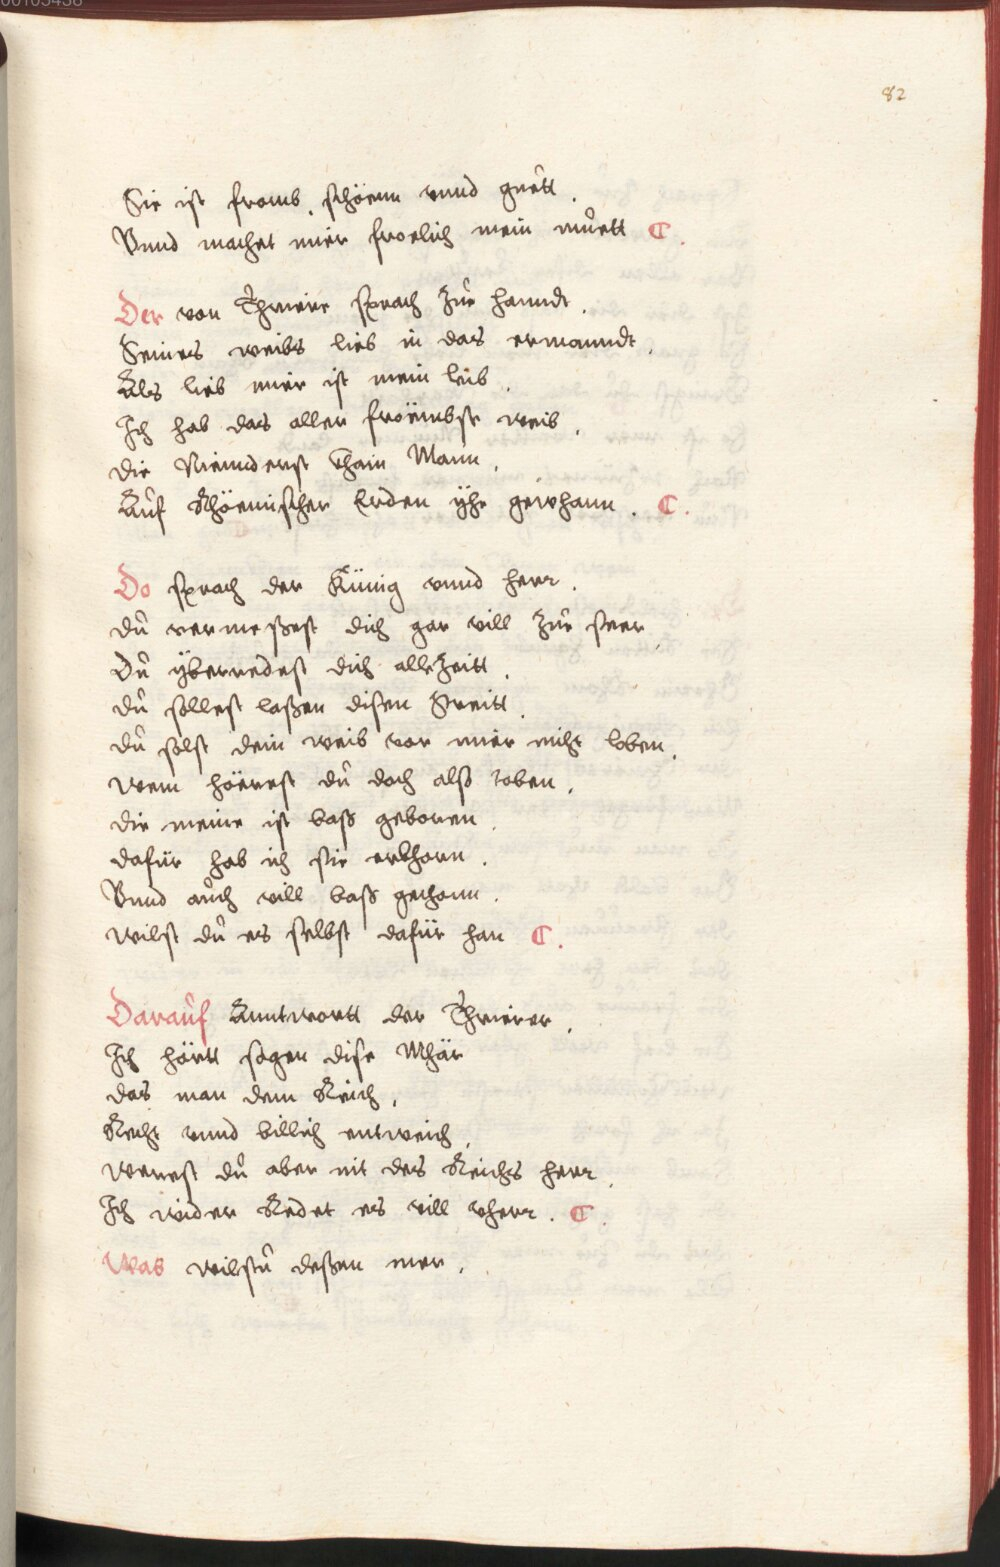 82
Sie ist fromb, schöenn vnnd guett.
Vnnd machet mier froelich mein muett C.
Der von Thriere sprach zue hanndt.
Seines weibs lieb in das ermanndt.
Als lieb mier ist mein leib.
Ich hab das aller froëmbste weib.
die Niemderst khain Mann.
Auf Rhöemischer Erden yhe gewhann. C.
Do sprach der Künig vnnd herr.
du vermeßest dich gar vill zue seer
Du yberredest dich allezeitt.
du sollest laßen disen Streitt.
du solst dein weib vor mier niht loben.
wem hörest du doch alß toben.
die meine ist baß geboren.
dafür hab ich sie erkhorn.
Vnnd auch vill baß gethonn.
wilst du es selbst dafür han C.
Darauf Anntwortt der Thrierer.
Ich hörtt sagen dise Mhär
das man dem Reich.
Recht vnnd billich entweich.
werest du aber nit des Reichs herr.
Ich wider Redet es vill vherr. C.
Was wilstu deßen mer.